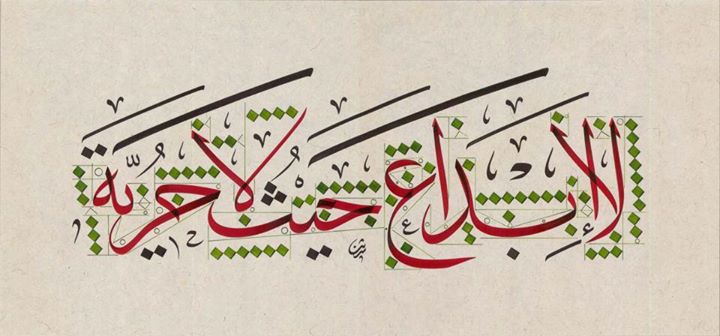 لا إبداع حيث لا حرية